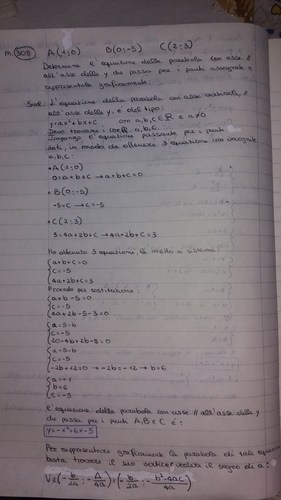 n. 308 A(1;0) B(0;-5) C(2;3)
Determina l'equazione della parabola con asse //
all'asse delle y che passa per i punti assegnati e
rappresentala graficamente.
Sval. L'equazione della parabola con asse verticale, //
all'asse delle y, è del tipo:
y=ax²+bx+c con a,b,c∈R e a≠0
Devo trovare i coeff. a,b,c.
Impongo il passaggio per i punti
dati, in modo da ottenere 3 equazioni con incognite
a,b,c:
• A(1;0)
0=a+b+c → a+b+c=0
• B(0;-5)
-5=c → c=-5
• C(2;3)
3=4a+2b+c → 4a+2b+c=3
Ho ottenuto 3 equazioni, le metto a sistema:
{a+b+c=0
{c=-5
{4a+2b+c=3
Procedo per sostituzione:
{a+b-5=0
{c=-5
{4a+2b-5-3=0
{a=5-b
{c=-5
{20-4b+2b-8=0
{a=5-b
{c=-5
{-2b+12=0 → -2b=-12 → b=6
{a=-1
{b=6
{c=-5
L'equazione della parabola con asse // all'asse delle y
che passa per i punti A,B e C è:
y=-x²+6x-5
Per rappresentare graficamente la parabola di tale equaz.
basta trovare il suo vertice e vedere il segno di a:
V=(-b/2a ; -Δ/4a)=(-b/2a ; -b²-4ac/4a)